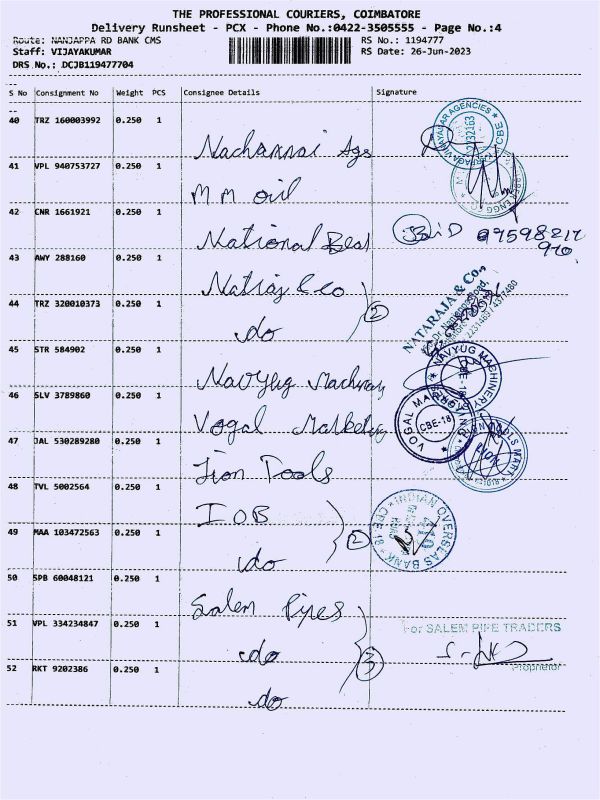 THE PROFESSIONAL COURIERS, COIMBATORE
Delivery Runsheet - PCX - Phone No.:0422-3505555 - Page No.:4
Route: NANJAPPA RD BANK CMS
RS No.: 1194777
Staff: VIJAYAKUMAR
RS Date: 26-Jun-2023
DRS No.: DCJB119477704
S No Consignment No Weight PCS Consignee Details Signature
40 TRZ 160003992 0.250 1
Nachammai Ags
41 VPL 940753727 0.250 1
MM oil
42 CNR 1661921 0.250 1
National Bear
43 AWY 288160 0.250 1
Natraj & co
44 TRZ 320010373 0.250 1
do
2
NATARAJA & Co.,
45 STR 584902 0.250 1
Navyug Machinary
NAVYUG MACHINERY
46 SLV 3789860 0.250 1
Vogal Marketing
VOGAL
CBE-18
47 JAL 530289280 0.250 1
Jion Tools
48 TVL 5002564 0.250 1
IOB
INDIAN OVERSEAS BANK
CBE 18
49 MAA 103472563 0.250 1
do
2
50 SPB 60048121 0.250 1
Salem Pipes
51 VPL 334234847 0.250 1
do
For SALEM PIPE TRADERS
Proprietor
52 RKT 9202386 0.250 1
do
3